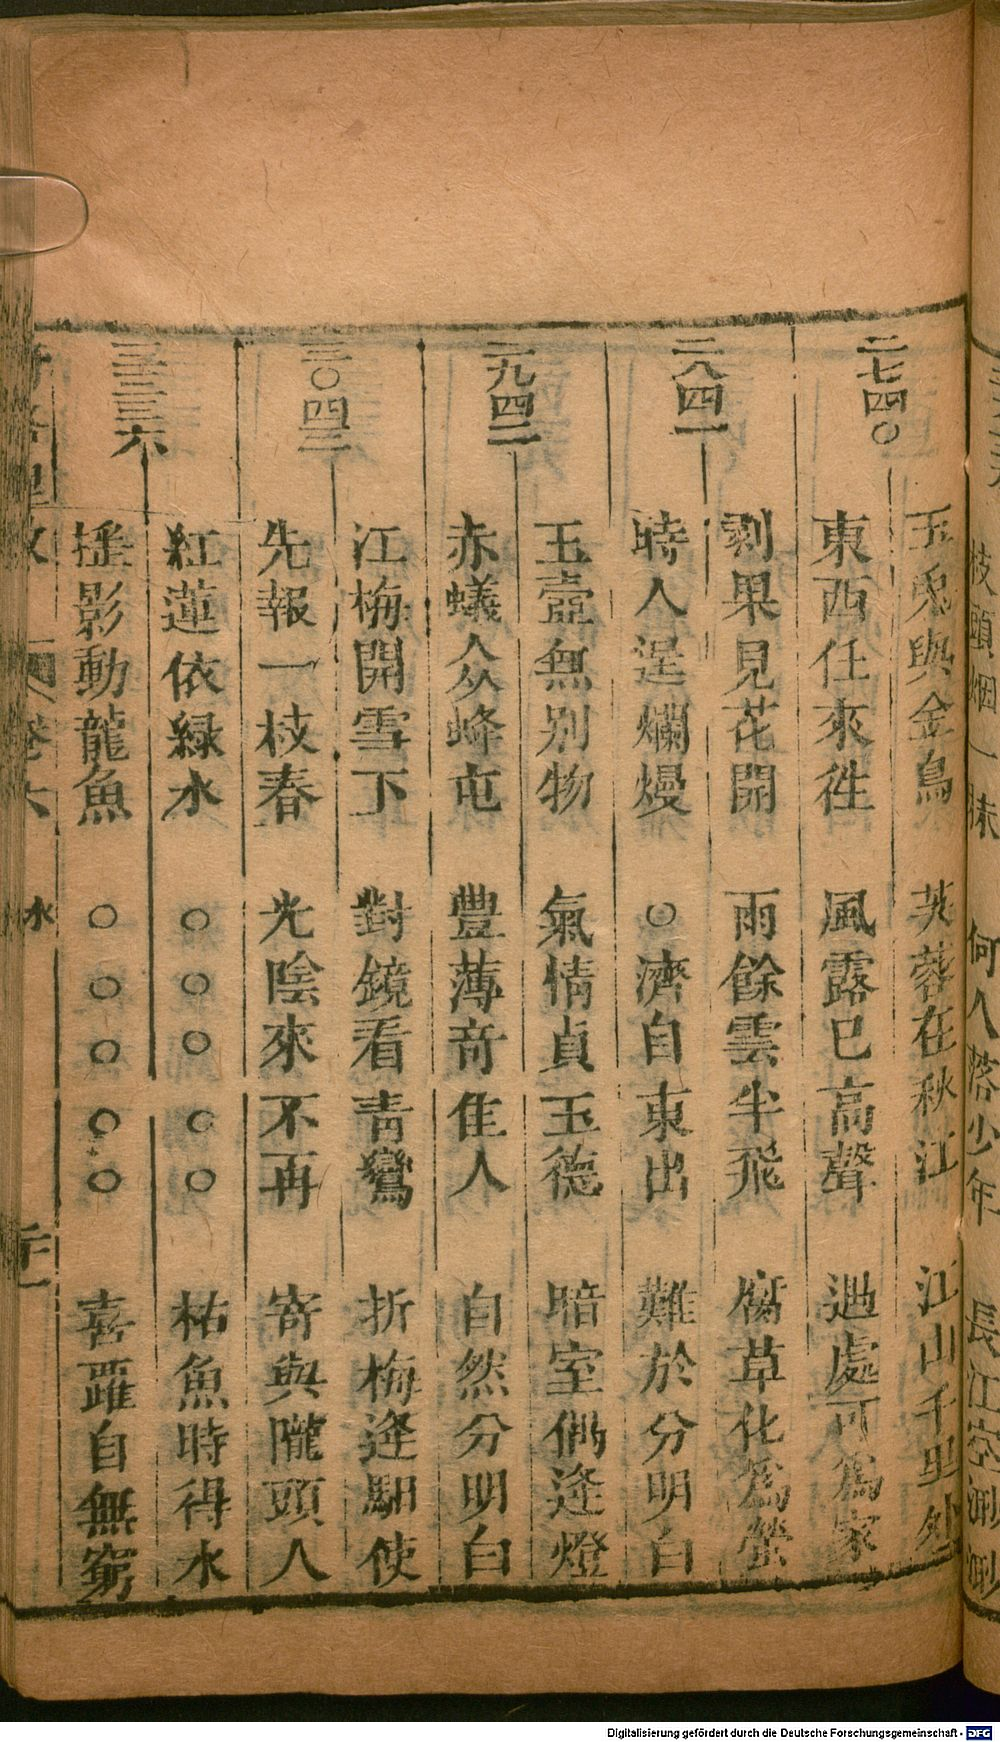 二七四〇
玉兎與金烏　芙蓉在秋江　江山千里外
東西任來徃　風露已高聲　過處可爲家
二八四一
剥果見花開　雨餘雲半飛　腐草化爲螢
時人逞爛熳　○濟自東出　難於分明白
二九四二
玉壺無別物　氣情貞玉德　暗室偶逢燈
赤蟻人从峰屯　豐薄奇隹人　自然分明白
三〇四三
江梅開雪下　對鏡看青鸞　折梅逢馹使
先報一枝春　光陰來不再　寄與隴頭人
三三三六
紅蓮依緑水　○○○○○　枯魚時得水
揺影動龍魚　○○○○○　喜躍自無窮
卷六　水
枝頭烟一抹　何人落少年　長江空渺渺
Digitalisierung gefördert durch die Deutsche Forschungsgemeinschaft - DFG